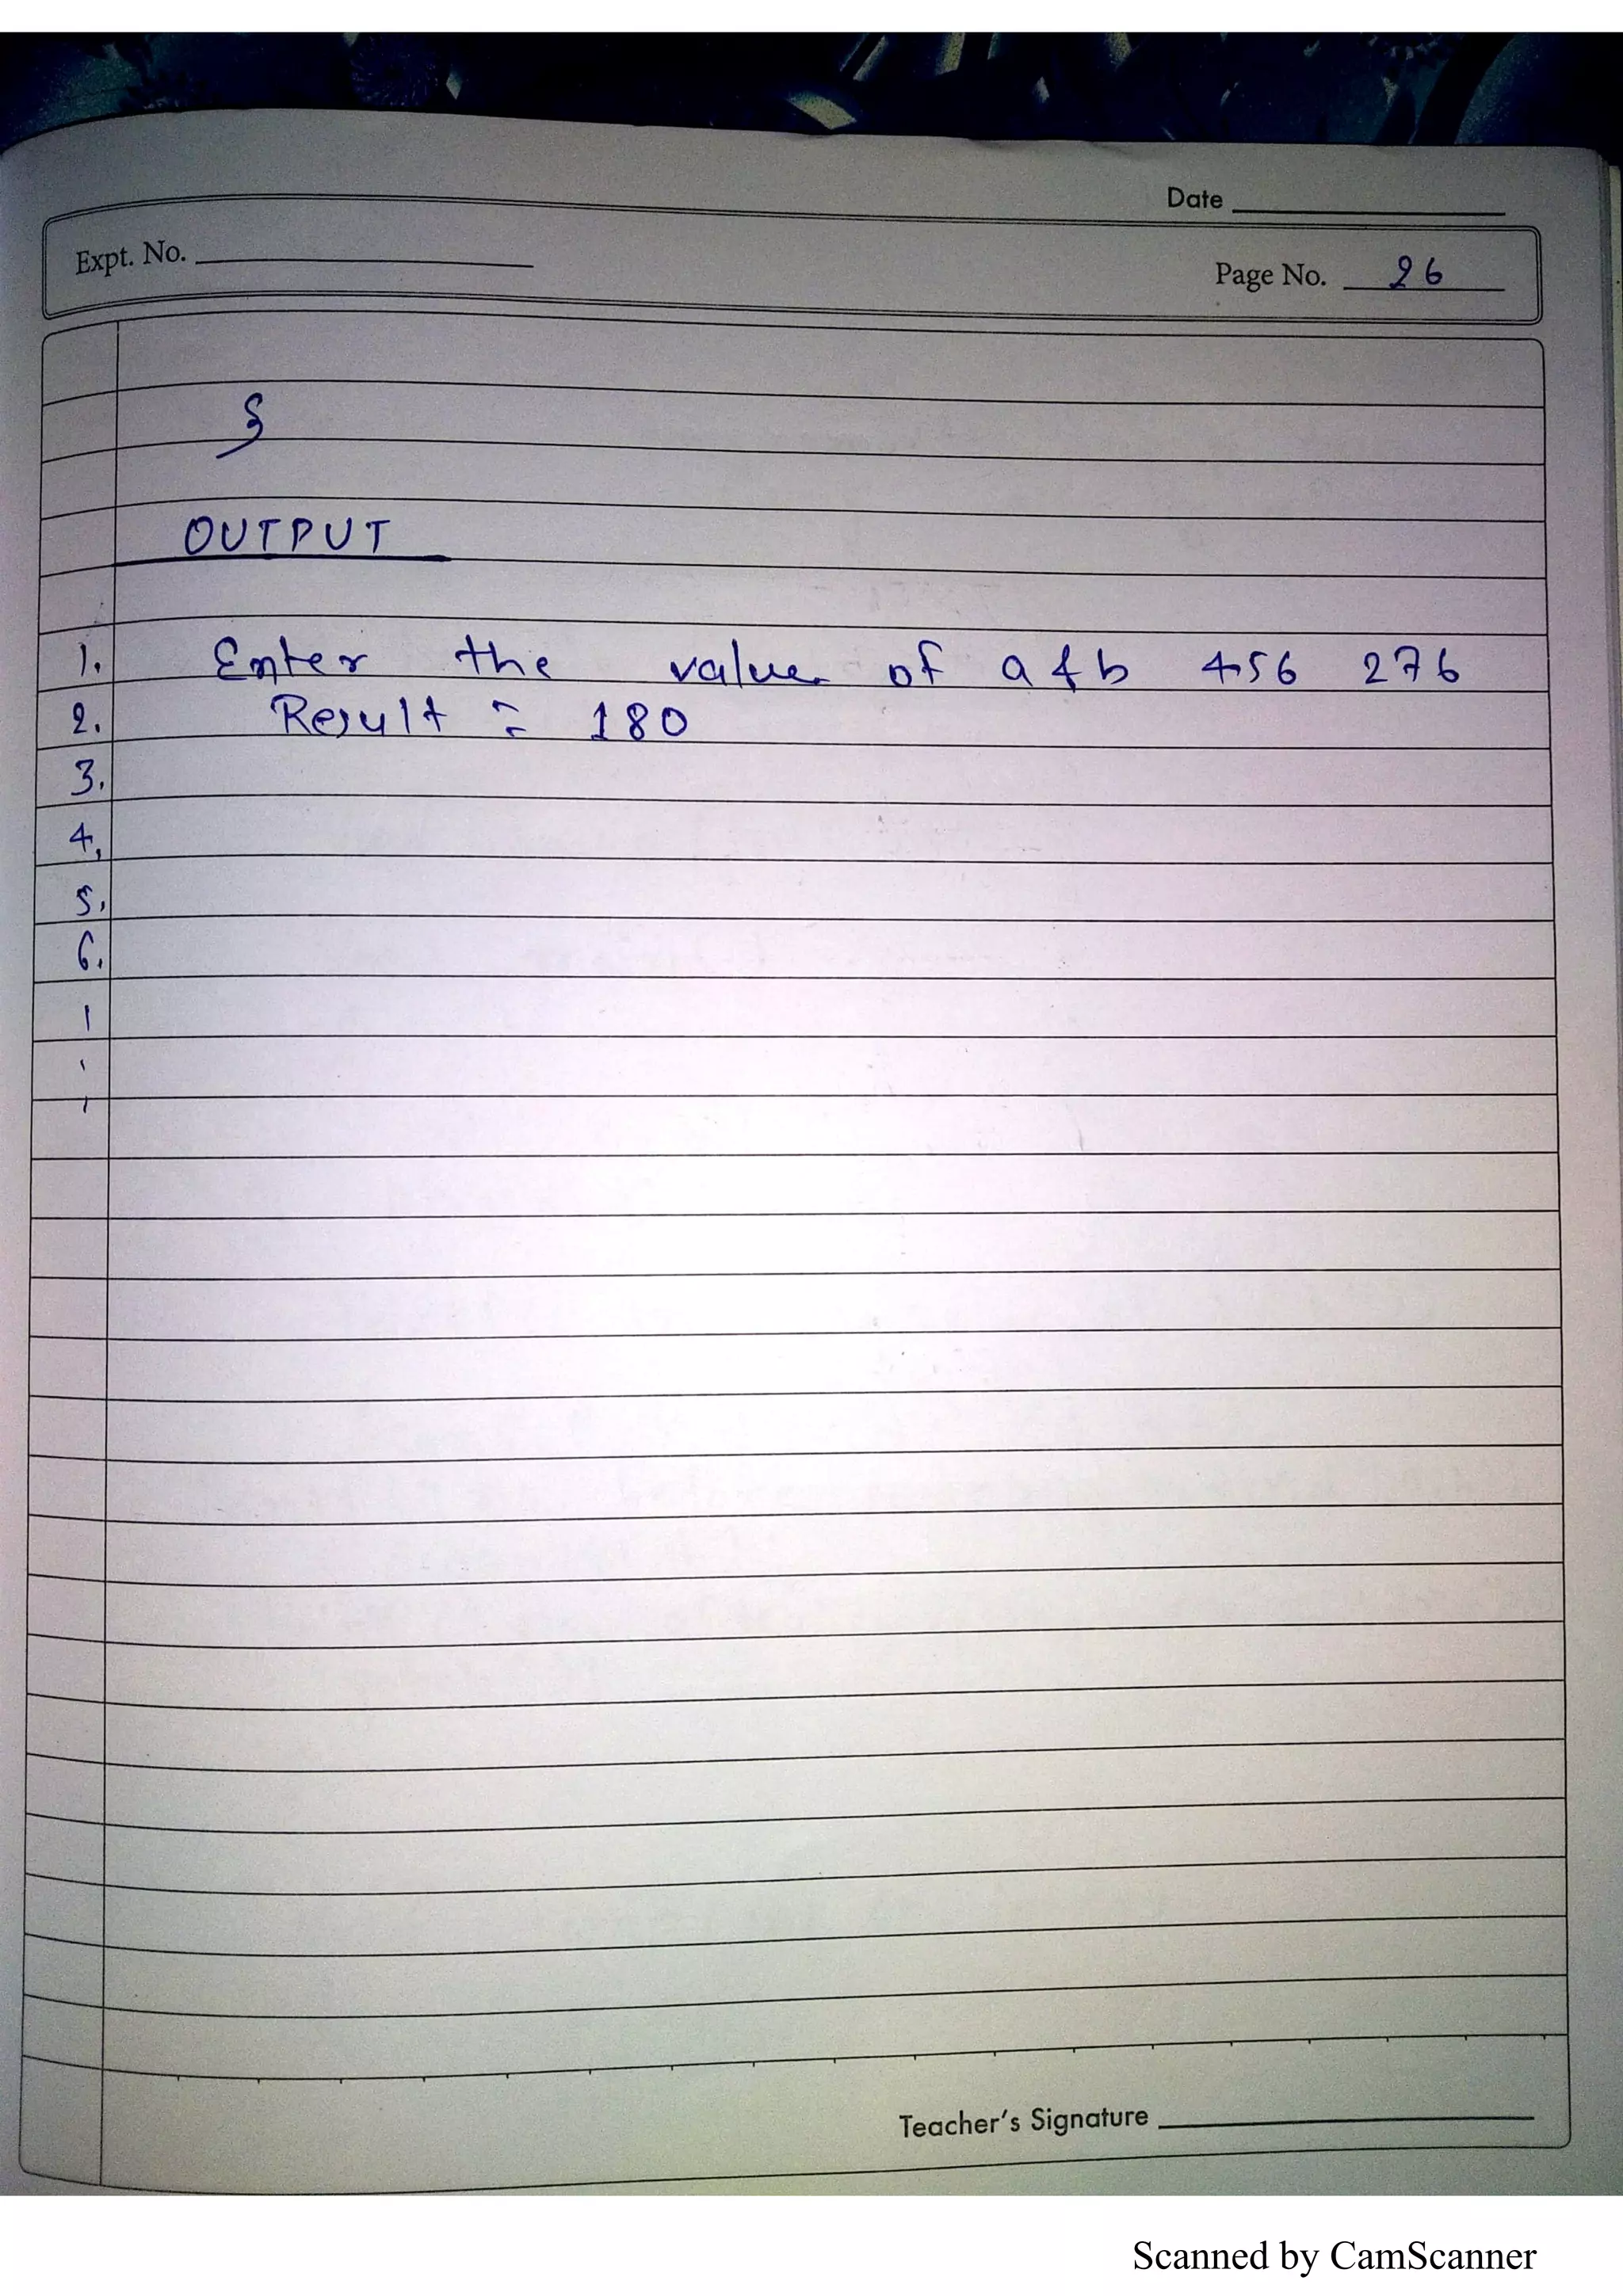 Date
Expt. No.
Page No. 26
}
OUTPUT
1. Enter the value of a & b 456 276
2. Result = 180
3.
4.
5.
6.
Teacher's Signature
Scanned by CamScanner